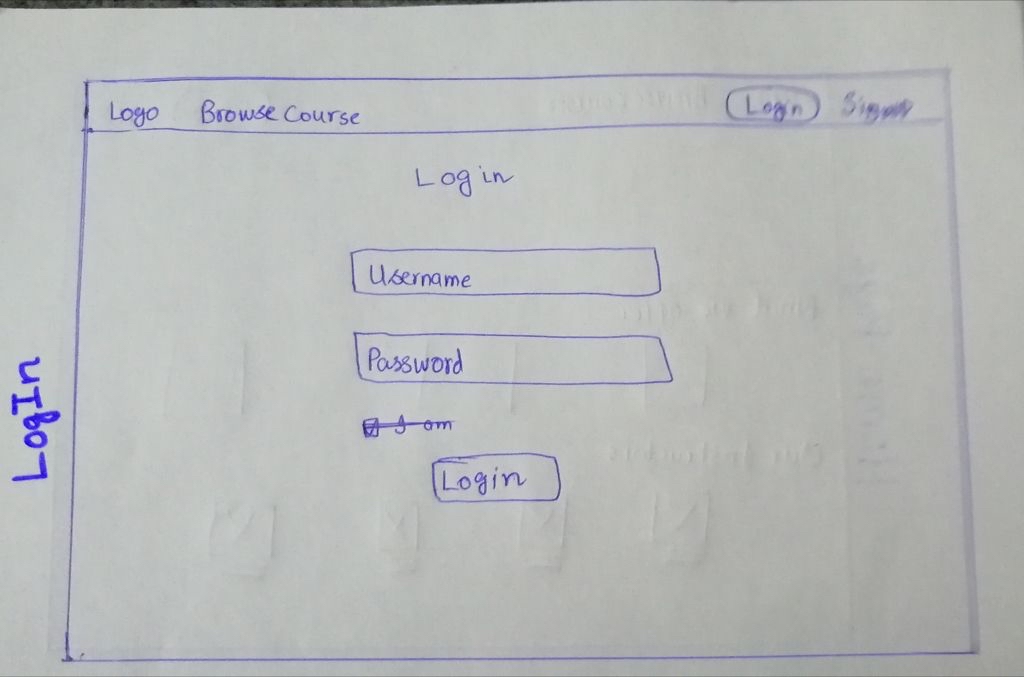 Logo Browse Course Login Signup
Login
Username
Password
I am
Login
LogIn